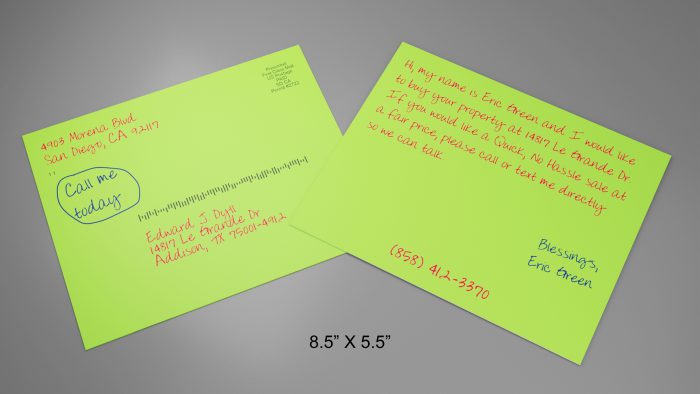 4903 Morena Blvd
San Diego, CA 92117
Presorted
First Class Mail
US Postage
PAID
SD CA
Permit #2722
Call me
today
Edward J Dyll
14817 Le Grande Dr
Addison, TX 75001-4912
Hi, my name is Eric Green and I would like
to buy your property at 14817 Le Grande Dr.
If you would like a Quick, No Hassle sale at
a fair price, please call or text me directly
so we can talk
Blessings,
Eric Green
(858) 412-3370
8.5” X 5.5”